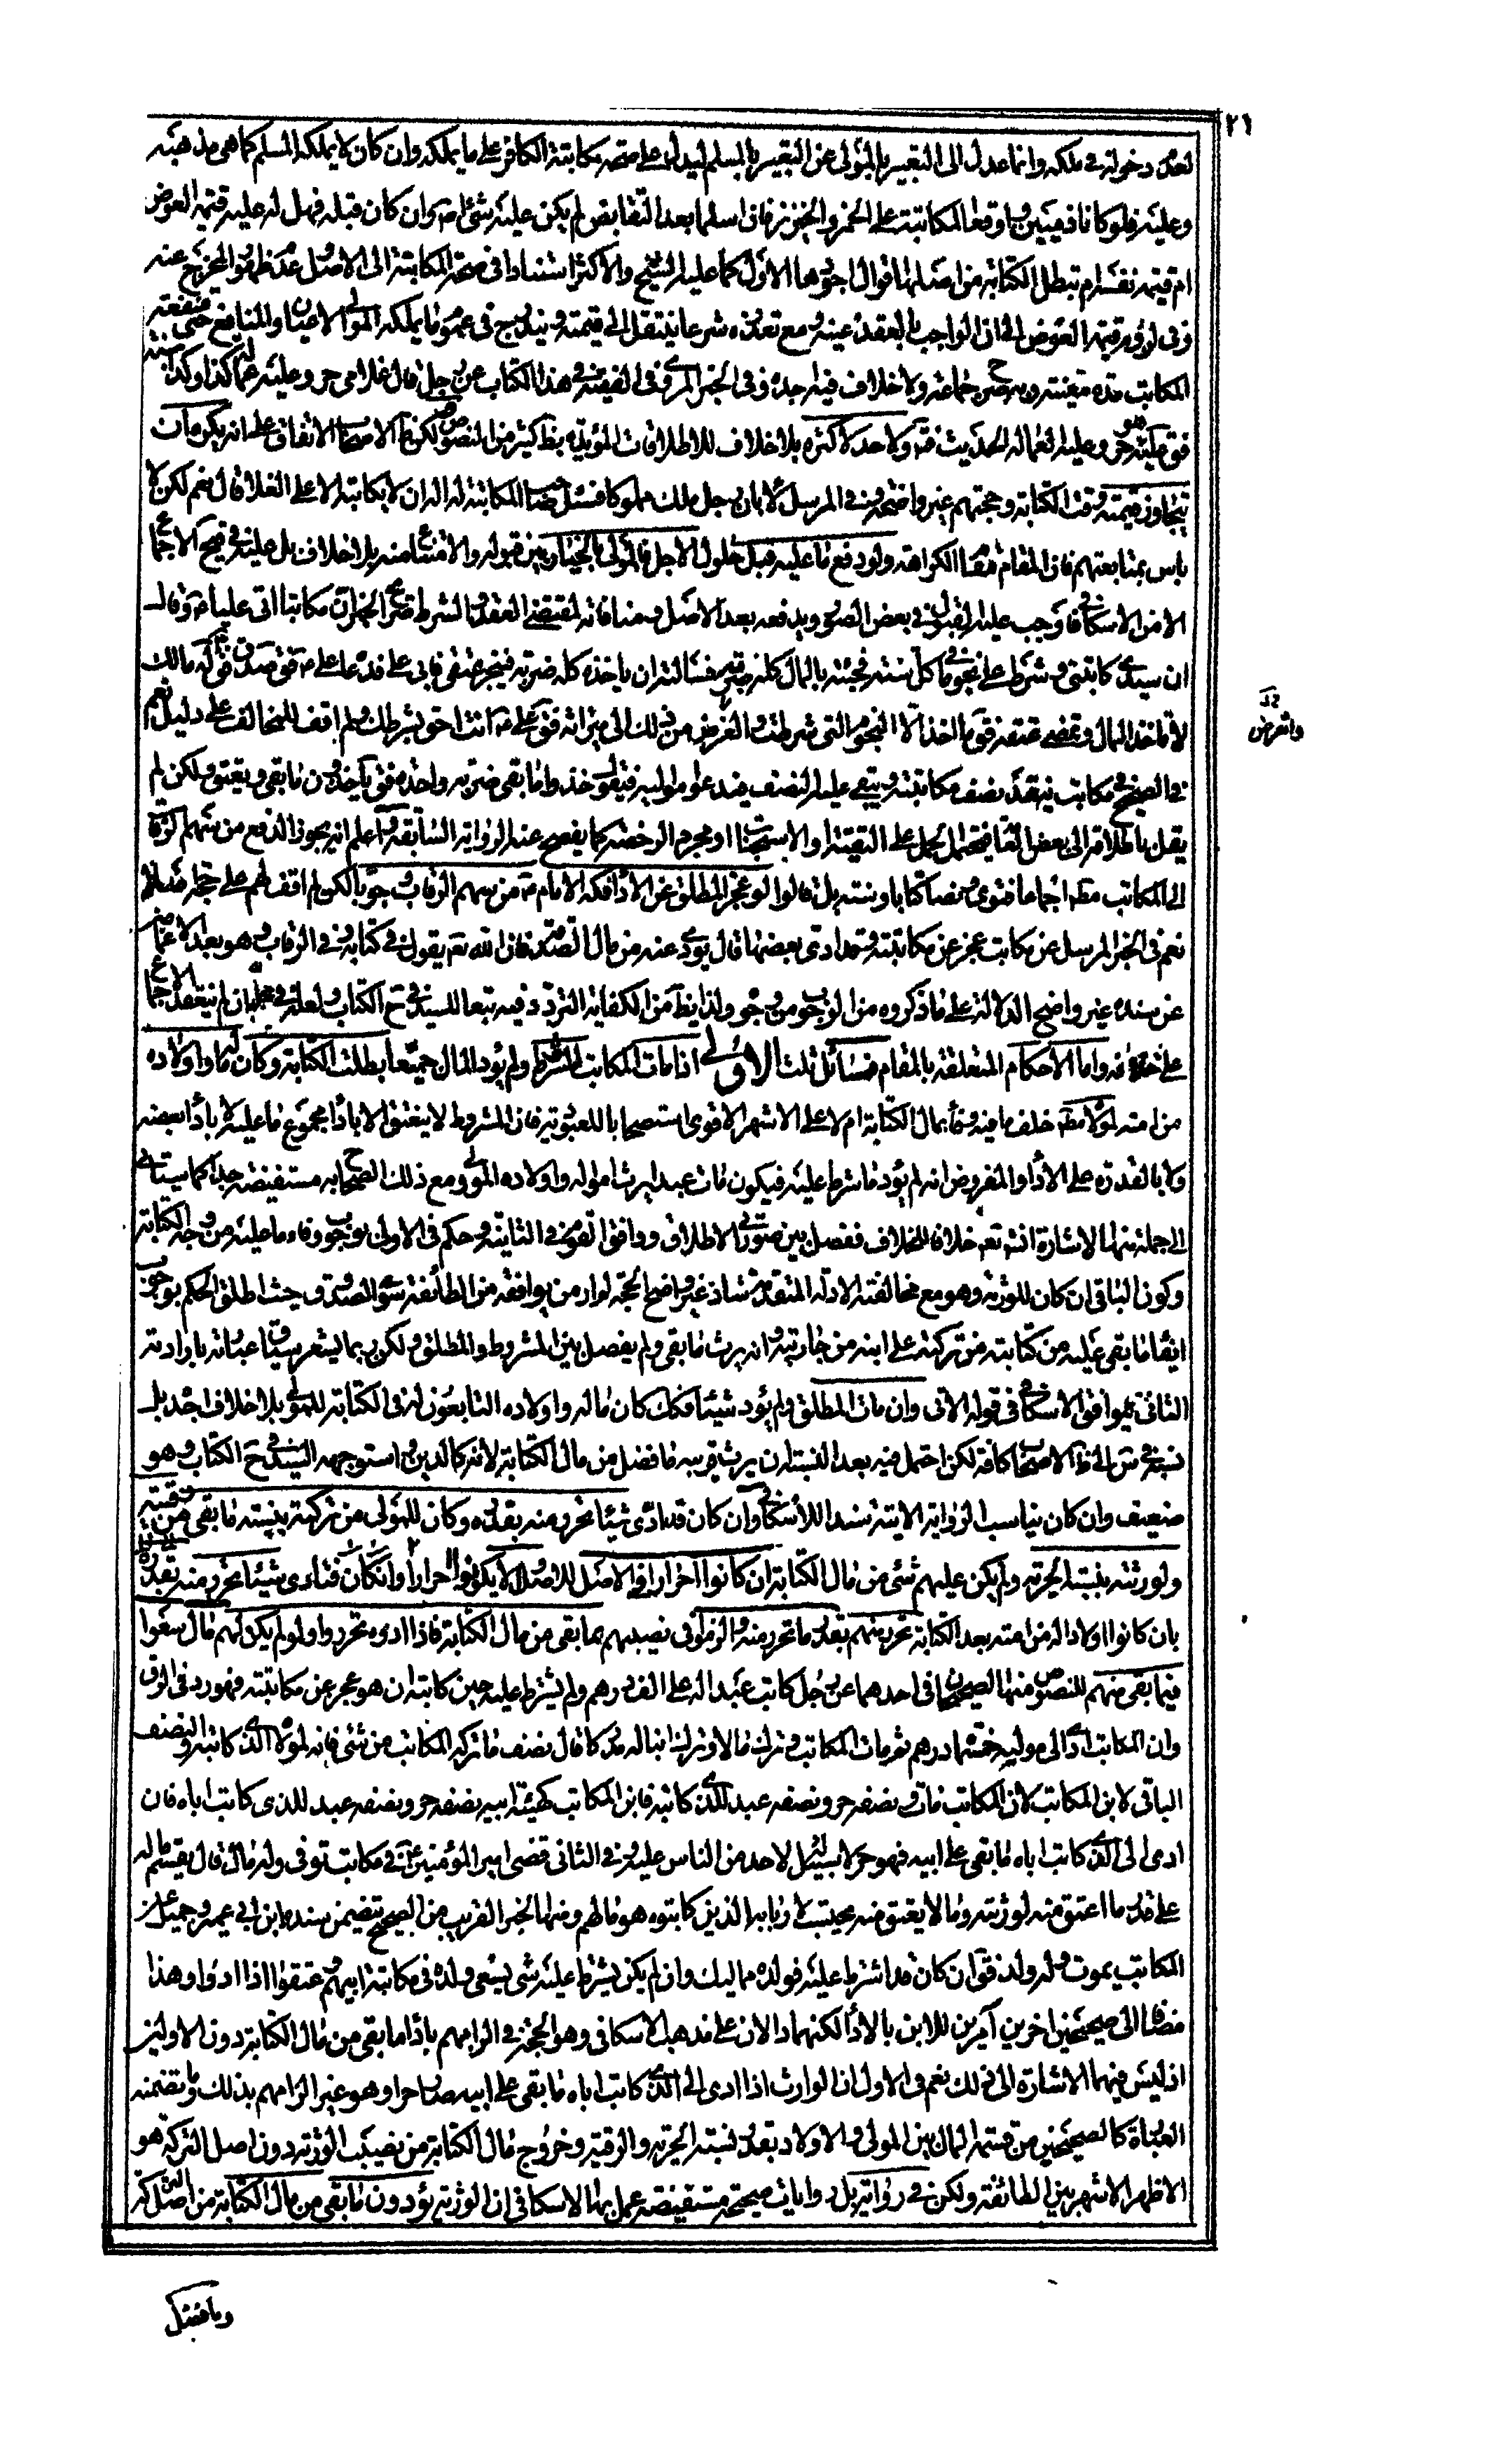 ٢١
لعدم دخوله في ملكه وانما عدل الى التعبير بالمولى عن التعبير بالمسلم ليدل على صحة مكاتبة الكافر على ما يملكه وان كان لا يملكه المسلم كما هى مذهبه
وعليه فلو كانا ذميين واوقعا المكاتبة على الخمر والخنزير فان اسلما بعد التقابض لم يكن عليه شئ وان كان قبله فهل له عليه قيمة العوض
ام قيمة نفسه ام تبطل الكتابة من اصلها اقوال اجودها الاول كما عليه الشيخ والاكثر استنادا في صحة المكاتبة الى الاصل عدم ظهور المخرج عنه
وفى لزوم قيمة العوض الى ان الواجب بالعقد عينه ومع تعذره شرعا ينتقل الى قيمته ويندرج في عموم ما يملكه المولى الاعيان والمنافع حتى منفعة
المكاتب مدة معينة وبه صرح جماعة ولا خلاف فيه اجده وفي الخبر المروى في الفقيه وفي هذا الكتاب عن رجل قال غلامى حر وعليه عمالة كذا وكذا سنة
فق هو حر وعليه العمالة الحديث ولا حد لاكثره بلا خلاف للاطلاقات المؤيدة بظ كثير من النصوص لكن الاصحاب الاتفاق على انه يكره ان
يتجاوز قيمته وقت الكتابة وحجتهم غير واضحة وفي المرسل لابان رجل ملك مملوكا فسئل صاحبه المكاتبة له ان لا يكاتبه الا على الغلا قال نعم لكن لا
باس بمتابعتهم فان المقام مقام الكراهة ولو دفع ما عليه قبل حلول الاجل فالمولى بالخيار بين قبوله والامتناع منه بلا خلاف بل عليه في صريح الاجماع
الا من الاسكافى فاوجب عليه القبول في بعض الصور ويدفعه بعد الاصل ومنافاته لمقتضى العقد والشرط صريح الخبر ان مكاتبا اتى عليا وقال
ان سيدى كاتبنى وشرط على نجوما في كل سنة فجئته بالمال كله ضربة فسالته ان ياخذه كله ضربة فيجيز عتقى فابى على فدعا على فق صدق فق له مالك
لا تاخذ المال وتمضى عتقه فق ما اخذ الا النجوم التى شرطت والغرض من ذلك الى ميراثه فق على انت احق بشرطك ولم اقف للمخالف على دليل نعم
في الصحيح في مكاتب ينقد نصف مكاتبته ويبقى عليه النصف فيدعو مواليه فيقول خذوا ما بقى ضربة واحدة فق ياخذون ما بقى ويعتق ولكن لم
يقل باطلاقه الى بعض الثقا فيحتمل يحمل على التقية او الاستحباب او مجرد الرخصة كما يفصح عنه الرواية السابقة واعلم انه يجوز الدفع من سهم الرقاب
الى المكاتب مط اجماعا فتوى ونصا كتابا وسنة بل قالوا لو عجز المطلق عن الاداء فكه الامام من سهم الرقاب وجوبا لكن لم اقف لهم على حجة مثلا
نعم في الخبر المرسل عن مكاتب عجز عن مكاتبته وقد ادى بعضها قال يؤدى عنه من مال الصدقة فان الله تع يقول في كتابه وفي الرقاب وهو بعد الاغماض
عن سنده غير واضح الدلالة على ما ذكروه من الوجوب ولذا يظ من الكفاية التردد فيه تبعا للسيد في ح الكتاب ولعله في محله ان لم ينعقد الاجماع
على خلافه واما الاحكام المتعلقة بالمقام مسائل ثلث الاولى اذا مات المكاتب المشروط ولم يؤد المال جميعا بطلت الكتابة وكان ماله واولاده
من امته لمولاه مطلقا خلف ما فيه وفاء بمال الكتابة ام لا على الاشهر الاقوى استصحابا للعبودية فان المشروط لا ينعتق الا باداء مجموع ما عليه لا باداء بعضه
ولا بالقدرة على الاداء والمفروض انه لم يؤد ما شرط عليه فيكون مات عبدا يرث امواله واولاده المولى ومع ذلك الصحاح به مستفيضة جدا كما سيتاتى
الى جملة منها الاشارة انشا تع خلافا للخلاف ففصل بين صورتى الاطلاق ووافق القوم في الثانية وحكم في الاولى بوجوب وفاء ما عليه من وجه الكتابة
وكون الباقى ان كان للورثة وهو مع مخالفته الادلة المتقدمة شاذ غير واضح الحجة لم ار من يوافقه من الطائفة سوى الصدوق حيث اطلق الحكم بوجوب
ايفاء ما بقى عليه من كتابته من تركته على ابنه من جاريته وانه يرث ما بقى ولم يفصل بين المشروط والمطلق ولكن ربما يشعر سياق عبارته بارادته
الثانى فيوافق الاسكافى في قوله الاتى وان مات المطلق ولم يؤد شيئا فكك كان ماله واولاده التابعون له في الكتابة للمولى بلا خلاف اجده بل
نسبه في لك الى ظ الاصحاب كافة لكن احتمل فيه بعد النسبة ان يرث قريبه ما فضل من مال الكتابة لانه كالدين واستوجهه السيد في ح الكتاب وهو
ضعيف وان كان يناسب الرواية الاتية سندا للاسكافى وان كان قد ادى شيئا تحرر منه بقدره وكان للمولى من تركته بنسبة ما بقى من رقيته
ولورثته بنسبة الحرية ولم يكن عليهم شئ من مال الكتابة ان كانوا احرارا في الاصل للاصل وان لم يكونوا احرارا وان كان قد ادى شيئا تحرر منه بقدره
بان كانوا اولادا له من امته بعد الكتابة تحرر منهم بقدر ما تحرر منه والزموا في نصيبهم بما بقى من مال الكتابة فاذا ادوه تحرروا ولو لم يكن لهم مال سعوا
فيما بقى منهم للنصوص منها الصحيحان في احدهما عن رجل كاتب عبدا له على الف درهم ولم يشترط عليه حين كاتبه ان هو عجز عن مكاتبته فهو رد في الرق
وان المكاتب ادى الى موليه خمسمائة درهم ثم مات المكاتب وترك مالا وترك ابنا له مدركا قال نصف ما تركه المكاتب من شئ فانه لمولاه الذى كاتبه والنصف
الباقى لابن المكاتب لان المكاتب مات ونصفه حر ونصفه عبد للذى كاتبه فابن المكاتب كهيئة ابيه نصفه حر ونصفه عبد للذى كاتب اباه فان
ادى الى الذى كاتب اباه ما بقى على ابيه فهو حر لا سبيل لاحد من الناس عليه وفي الثانى قضى امير المؤمنين في مكاتب توفى وله مال قال يقسم ماله
على قدر ما اعتق منه لورثته وما لا يعتق منه يحتسب لاربابه الذين كاتبوه هو مالهم ومنها الخبر القريب من الصحيح تضمن سنده ابن ابى عمير وجميل عن
المكاتب يموت وله ولد فق ان كان قد اشترط عليه فولده مماليك وان لم يكن يشترط عليه شئ يسعى ولده في مكاتبة ابيهم وعتقوا اذا ادوا وهذا
مضافا الى صحيحين اخرين آمرين للابن بالاداء لكنهما دالان على مذهب الاسكافى وهو الحجة في الزامهم باداء ما بقى من مال الكتابة دون الاولين
اذ ليس فيهما الاشارة الى ذلك نعم في الاول ان الوارث اذا ادى الى الذى كاتب اباه ما بقى على ابيه صار حرا وهو غير الزامهم بذلك وما تضمنه
العبارة كالصحيحين من قسمة المال بين المولى والاولاد بقدر نسبة الحرية والرقية وخروج مال الكتابة من نصيب الورثة دون اصل التركة هو
الاظهر الاشهر بين الطائفة ولكن في رواية بل روايات صحيحة مستفيضة عمل بها الاسكافى ان الورثة يؤدون ما بقى من مال الكتابة من اصل التركة
والغرض
وما فضل